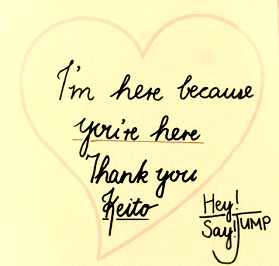 I'm here because
you're here
Thank you
Keito
Hey!
Say!JUMP